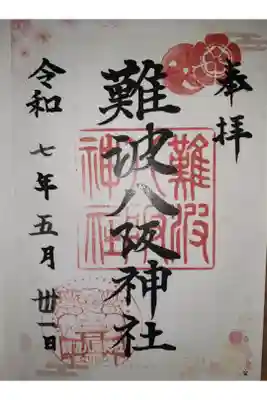 奉拝
難波八阪神社
難波八阪神社
令和七年五月丗一日